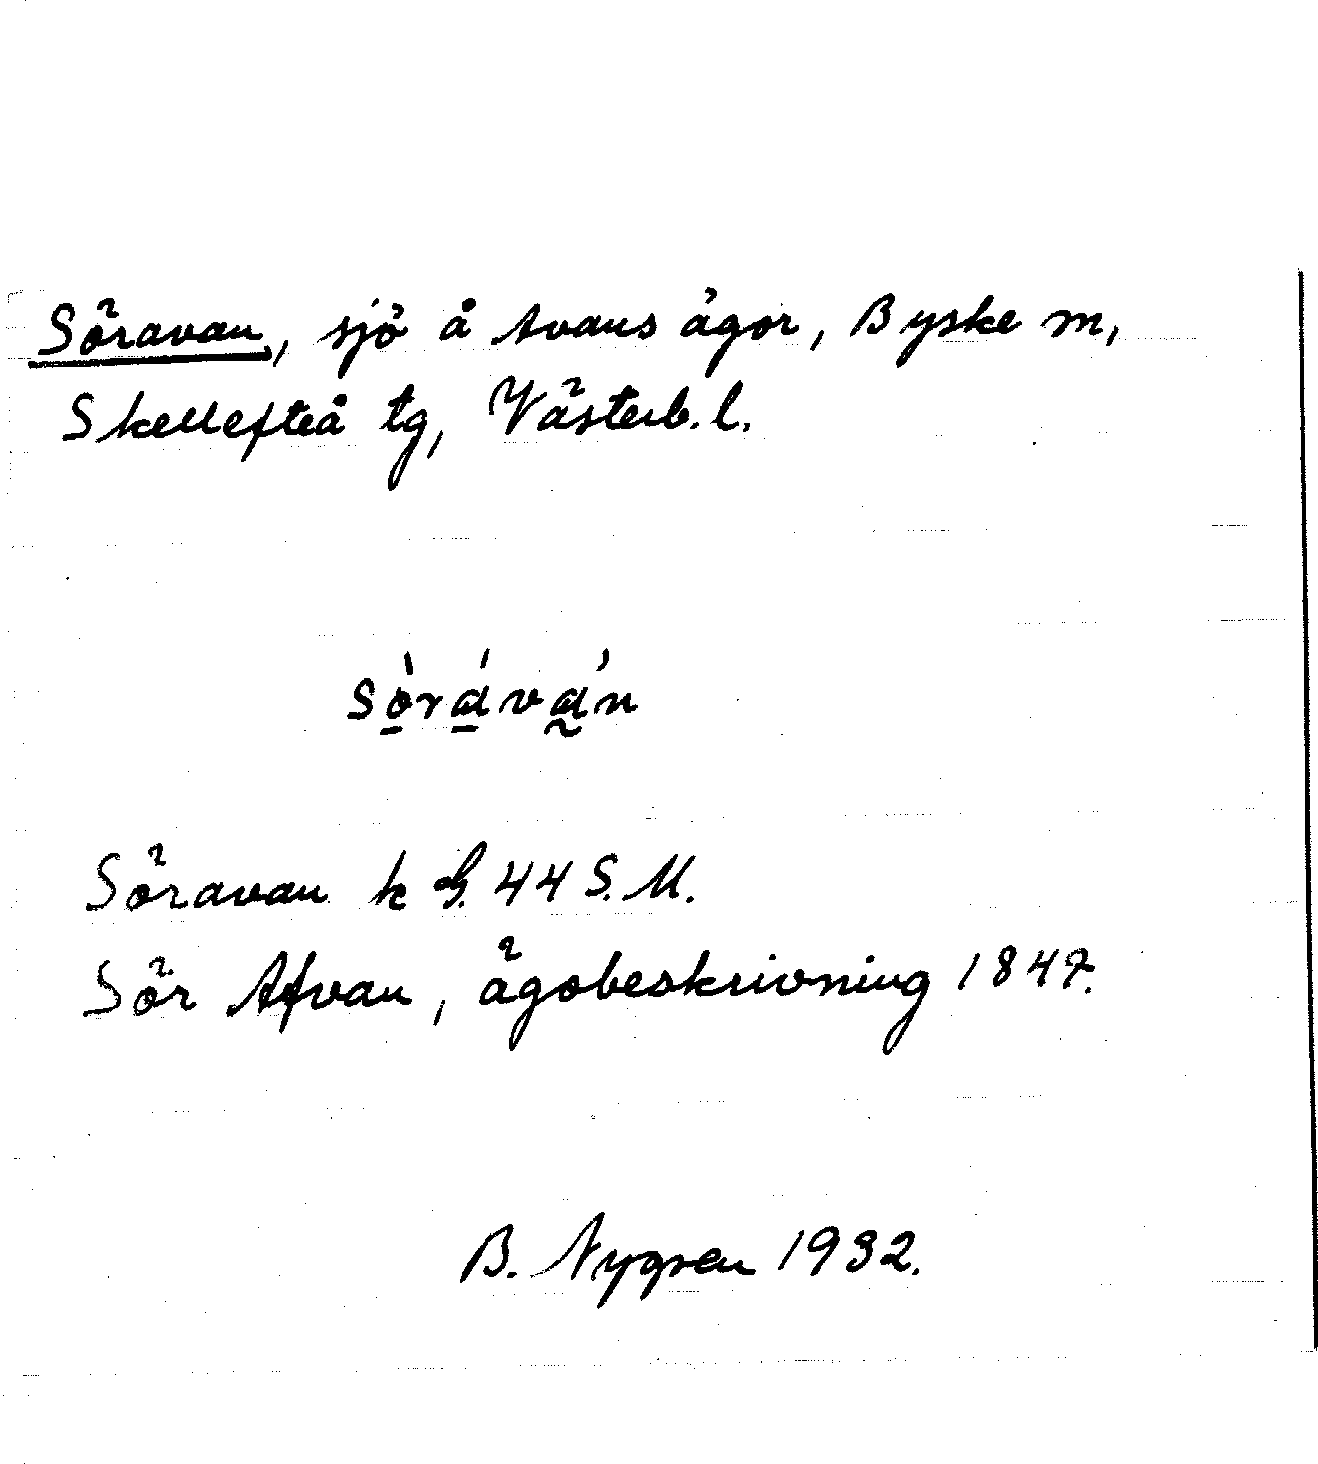 Söravan, sjö å Avans ägor, Byske sn,
Skellefteå tg, Västerb. l.
sòráván
Söravan k G. 44 S. M.
Sör Afvan, ägobeskrivning 1847.
B. Nygren 1932.